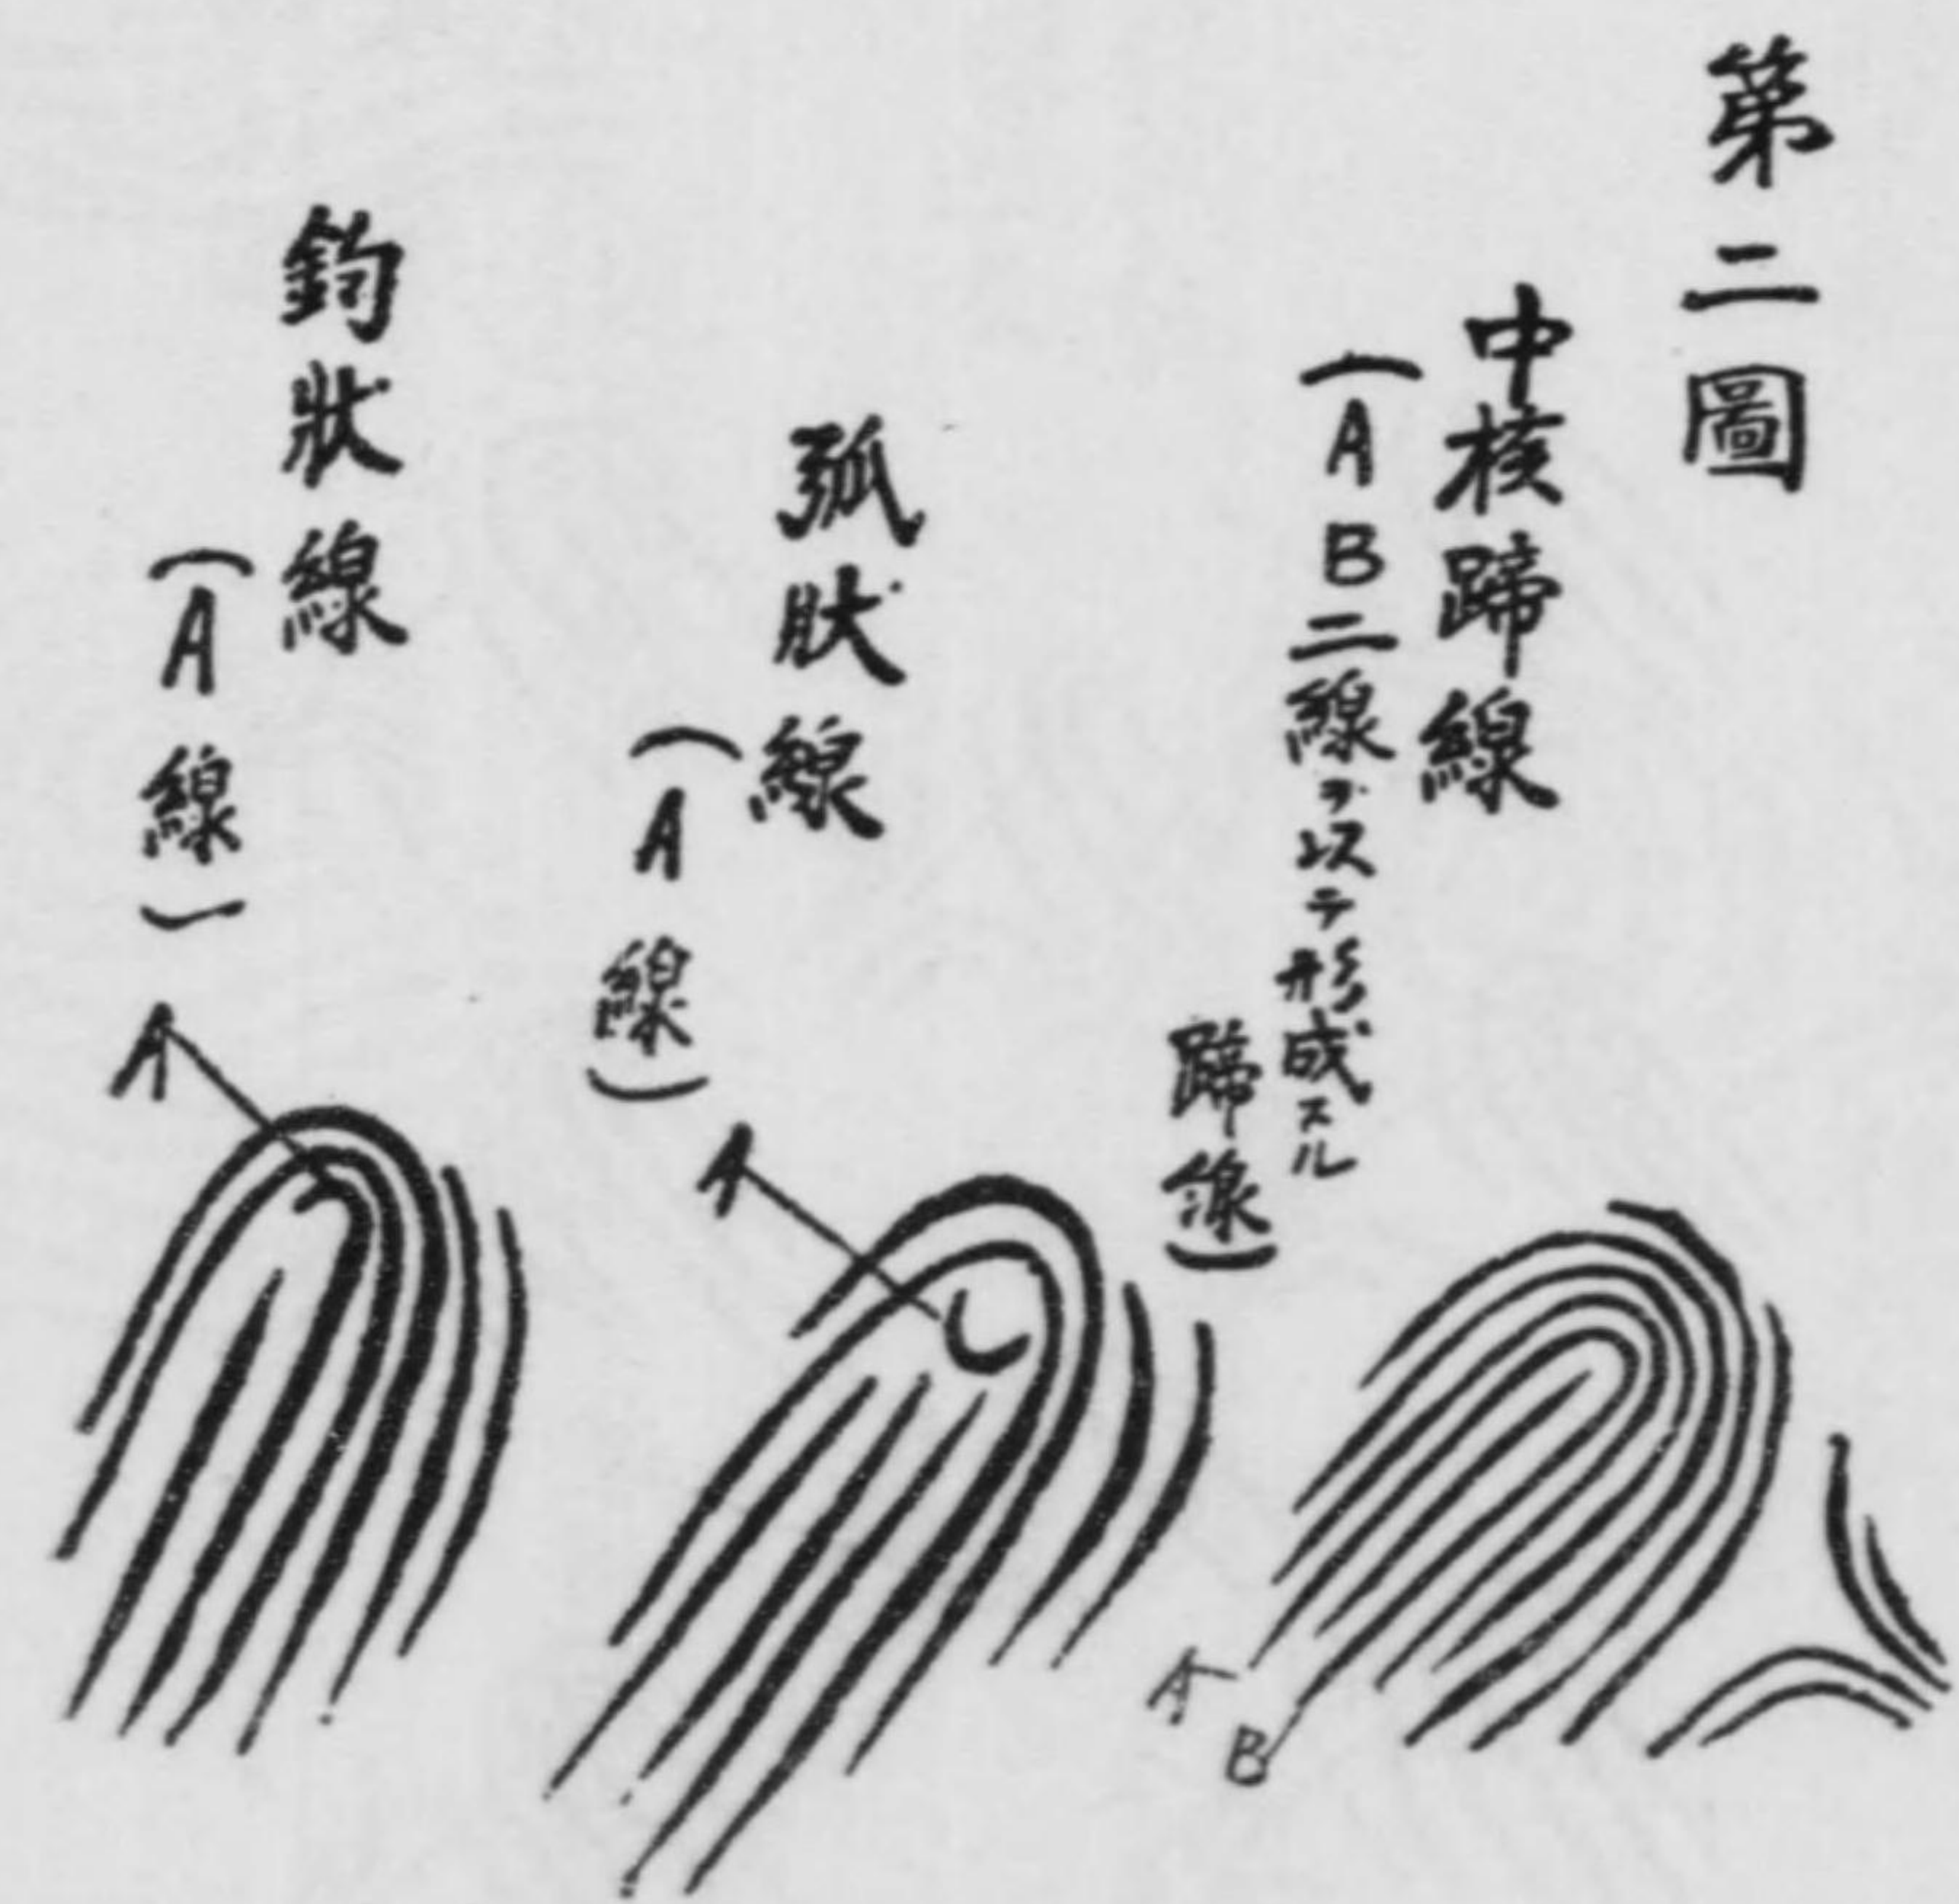 第二圖
中核蹄線
（AB二線ヲ以テ形成スル
蹄線）
弧狀線
（A線）
鈎狀線
（A線）
A
A
A
B